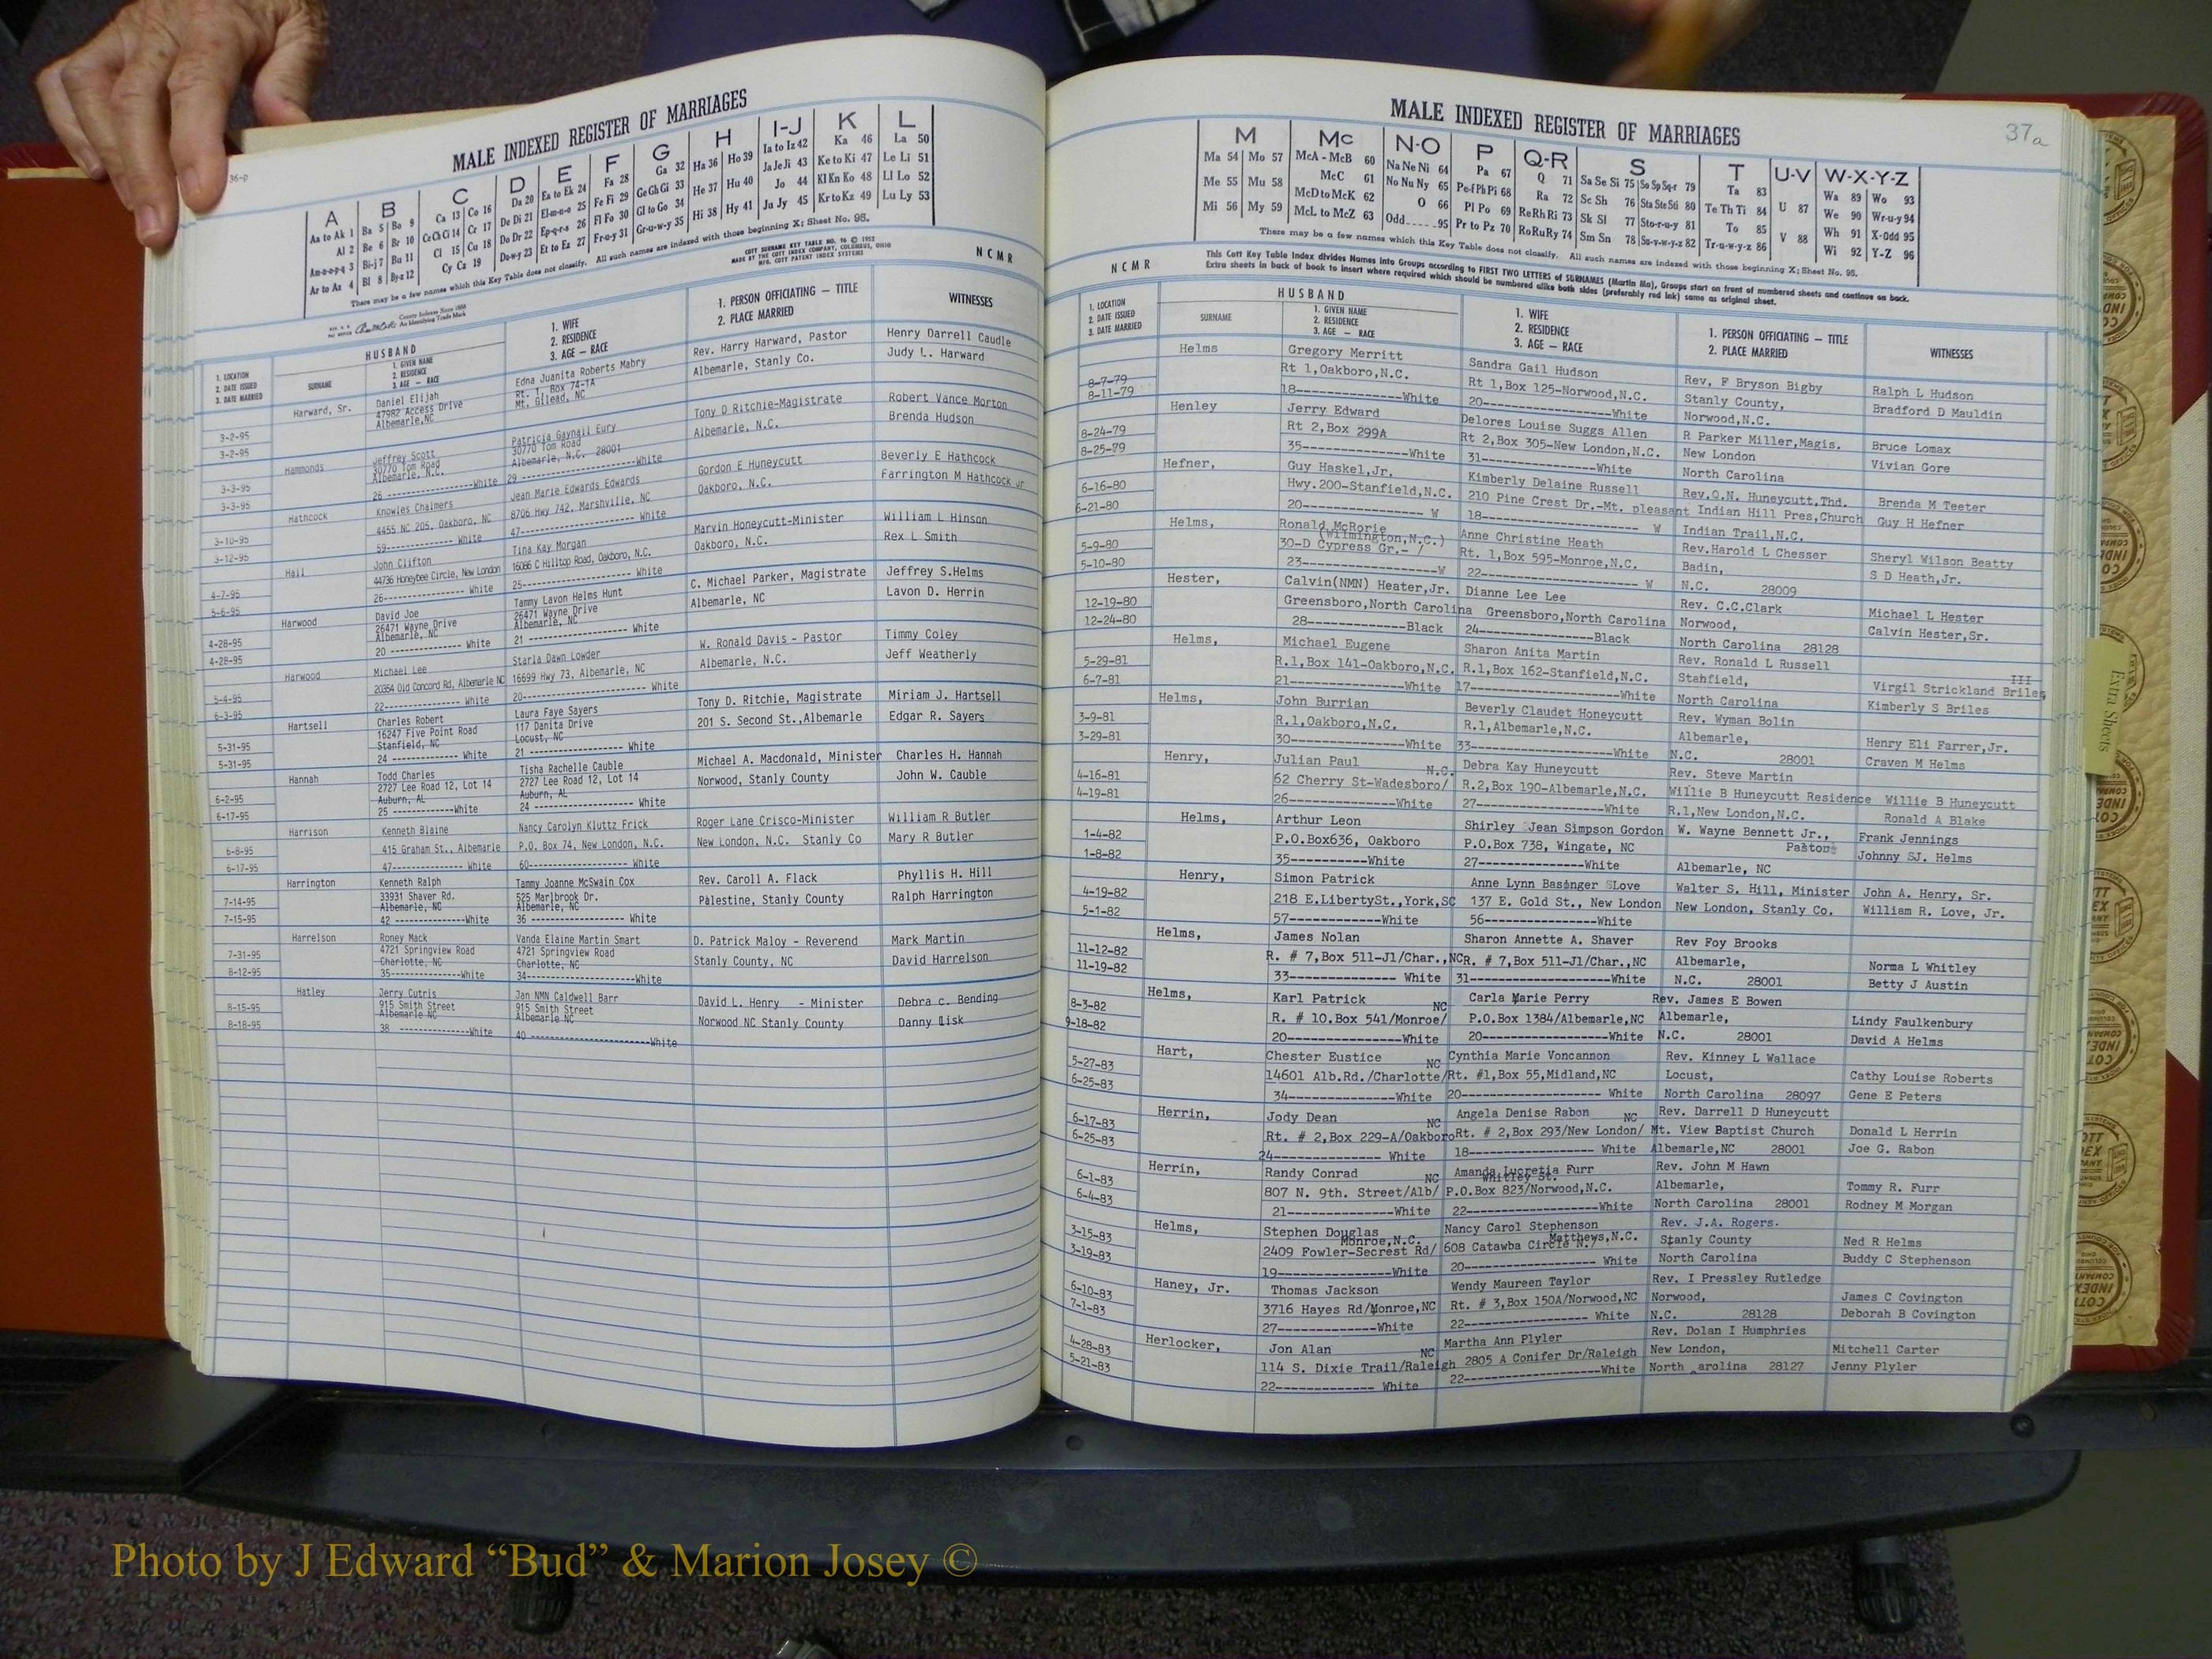 36-p
MALE INDEXED REGISTER OF MARRIAGES
A B C D E F G H I-J K L
Aa to Ak 1 Ba 5 Bo 9 Ca 13 Co 16 Da 20 Ea to Ek 24 Fa 28 Ga 32 Ha 36 Ho 39 Ia to Iz 42 Ka 46 La 50
Al 2 Be 6 Br 10 Ce Ch Ci 14 Cr 17 De Di 21 El-m-n-o 25 Fe Fi 29 Ge Gh Gi 33 He 37 Hu 40 Ja Je Ji 43 Ke to Ki 47 Le Li 51
Am-n-o-p-q 3 Bi-j 7 Bu 11 Cl 15 Cu 18 Do Dr 22 Ep-q-r-s 26 Fl Fo 30 Gl to Go 34 Hi 38 Hy 41 Jo 44 Kl Kn Ko 48 Ll Lo 52
Ar to Az 4 Bl 8 By-z 12 Cy Cz 19 Du-w-y 23 Et to Ez 27 Fr-u-y 31 Gr-u-w-y 35 Ju Jy 45 Kr to Kz 49 Lu Ly 53
There may be a few names which this Key Table does not classify. All such names are indexed with those beginning X; Sheet No. 95.
COTT SURNAME KEY TABLE NO. 96 © 1952
MADE BY THE COTT INDEX COMPANY, COLUMBUS, OHIO
MFG. COTT PATENT INDEX SYSTEMS
County Indexes Since 1888
An Identifying Trade Mark
NCMR
1. LOCATION
2. DATE ISSUED
3. DATE MARRIED
HUSBAND
SURNAME
1. GIVEN NAME
2. RESIDENCE
3. AGE — RACE
1. WIFE
2. RESIDENCE
3. AGE — RACE
1. PERSON OFFICIATING — TITLE
2. PLACE MARRIED
WITNESSES
Harward, Sr. Daniel Elijah Edna Juanita Roberts Mabry Rev. Harry Harward, Pastor Henry Darrell Caudle
47982 Access Drive Rt. 1, Box 74-1A Albemarle, Stanly Co. Judy L. Harward
Albemarle,NC Mt. Gilead, NC
3-2-95
3-2-95
Hammonds Jeffrey Scott Patricia Gaynail Eury Tony D Ritchie-Magistrate Robert Vance Morton
30770 Tom Road 30770 Tom Road Albemarle, N.C. Brenda Hudson
Albemarle, N.C. Albemarle, N.C. 28001
3-3-95 26 ---------------White 29 ---------------White
3-3-95
Hathcock Knowles Chalmers Jean Marie Edwards Edwards Gordon E Huneycutt Beverly E Hathcock
4455 NC 205, Oakboro, NC 8706 Hwy 742, Marshville, NC Oakboro, N.C. Farrington M Hathcock Jr
3-10-95 59------------- White 47--------------- White
3-12-95
Hall John Clifton Tina Kay Morgan Marvin Honeycutt-Minister William L Hinson
44736 Honeybee Circle, New London 16086 C Hilltop Road, Oakboro, N.C. Oakboro, N.C. Rex L Smith
4-7-95 26------------- White 25--------------- White
5-6-95
Harwood David Joe Tammy Lavon Helms Hunt C. Michael Parker, Magistrate Jeffrey S.Helms
26471 Wayne Drive 26471 Wayne Drive Albemarle, NC Lavon D. Herrin
Albemarle, NC Albemarle, NC
4-28-95 20 ------------- White 21 --------------- White
4-28-95
Harwood Michael Lee Starla Dawn Lowder W. Ronald Davis - Pastor Timmy Coley
20354 Old Concord Rd, Albemarle NC 16699 Hwy 73, Albemarle, NC Albemarle, N.C. Jeff Weatherly
5-4-95 22------------- White 20--------------- White
6-3-95
Hartsell Charles Robert Laura Faye Sayers Tony D. Ritchie, Magistrate Miriam J. Hartsell
16247 Five Point Road 117 Danita Drive 201 S. Second St.,Albemarle Edgar R. Sayers
Stanfield, NC Locust, NC
5-31-95 24 ------------- White 21 --------------- White
5-31-95
Hannah Todd Charles Tisha Rachelle Cauble Michael A. Macdonald, Minister Charles H. Hannah
2727 Lee Road 12, Lot 14 2727 Lee Road 12, Lot 14 Norwood, Stanly County John W. Cauble
Auburn, AL Auburn, AL
6-2-95 25 -------------White 24 --------------- White
6-17-95
Harrison Kenneth Blaine Nancy Carolyn Kluttz Frick Roger Lane Crisco-Minister William R Butler
6-8-95 415 Graham St., Albemarle P.O. Box 74, New London, N.C. New London, N.C. Stanly Co Mary R Butler
6-17-95 47------------- White 60--------------- White
Harrington Kenneth Ralph Tammy Joanne McSwain Cox Rev. Caroll A. Flack Phyllis H. Hill
7-14-95 33931 Shaver Rd. 525 Marlbrook Dr. Palestine, Stanly County Ralph Harrington
Albemarle, NC Albemarle, NC
7-15-95 42 -------------White 36 --------------- White
Harrelson Roney Mack Vanda Elaine Martin Smart D. Patrick Maloy - Reverend Mark Martin
7-31-95 4721 Springview Road 4721 Springview Road Stanly County, NC David Harrelson
Charlotte, NC Charlotte, NC
8-12-95 35-------------White 34---------------White
Hatley Jerry Cutris Jan NMN Caldwell Barr David L. Henry - Minister Debra c. Bending
8-15-95 915 Smith Street 915 Smith Street Norwood NC Stanly County Danny Lisk
Albemarle NC Albemarle NC
8-18-95 38 -------------White 40 ---------------White
37a
MALE INDEXED REGISTER OF MARRIAGES
M Mc N-O P Q-R S T U-V W-X-Y-Z
Ma 54 Mo 57 McA - McB 60 Na Ne Ni 64 Pa 67 Q 71 Sa Se Si 75 So Sp Sq-r 79 Ta 83 U 87 Wa 89 Wo 93
Me 55 Mu 58 McC 61 No Nu Ny 65 Pe-f Ph Pi 68 Ra 72 Sc Sh 76 Sta Ste Sti 80 Te Th Ti 84 V 88 We 90 Wr-u-y 94
Mi 56 My 59 McD to McK 62 O 66 Pl Po 69 Re Rh Ri 73 Sk Sl 77 Sto-r-u-y 81 To 85 Wh 91 X-Odd 95
McL to McZ 63 Odd 95 Pr to Pz 70 Ro Ru Ry 74 Sm Sn 78 Su-v-w-y-z 82 Tr-u-w-y-z 86 Wi 92 Y-Z 96
There may be a few names which this Key Table does not classify. All such names are indexed with those beginning X; Sheet No. 95.
This Cott Key Table Index divides Names into Groups according to FIRST TWO LETTERS of SURNAMES (Martin Ma), Groups start on front of numbered sheets and continue on back.
Extra sheets in back of book to insert where required which should be numbered alike both sides (preferably red ink) same as original sheet.
NCMR
1. LOCATION
2. DATE ISSUED
3. DATE MARRIED
HUSBAND
SURNAME
1. GIVEN NAME
2. RESIDENCE
3. AGE — RACE
1. WIFE
2. RESIDENCE
3. AGE — RACE
1. PERSON OFFICIATING — TITLE
2. PLACE MARRIED
WITNESSES
Helms Gregory Merritt Sandra Gail Hudson Rev, F Bryson Bigby Ralph L Hudson
8-7-79 Rt 1,Oakboro,N.C. Rt 1,Box 125-Norwood,N.C. Stanly County, Bradford D Mauldin
8-11-79 18-------------White 20---------------White Norwood,N.C.
Henley Jerry Edward Delores Louise Suggs Allen R Parker Miller,Magis. Bruce Lomax
8-24-79 Rt 2,Box 299A Rt 2,Box 305-New London,N.C. New London Vivian Gore
8-25-79 35-------------White 31---------------White North Carolina
Hefner, Guy Haskel,Jr, Kimberly Delaine Russell Rev.O.N. Huneycutt,Thd. Brenda M Teeter
6-16-80 Hwy.200-Stanfield,N.C. 210 Pine Crest Dr.-Mt. pleasant Indian Hill Pres,Church Guy H Hefner
6-21-80 20------------- W 18--------------- W Indian Trail,N.C.
Helms, Ronald McRorie Anne Christine Heath Rev.Harold L Chesser Sheryl Wilson Beatty
(Wilmington,N.C.)
5-9-80 30-D Cypress Gr.- / Rt. 1,Box 595-Monroe,N.C. Badin, S D Heath,Jr.
5-10-80 23-------------W 22--------------- W N.C. 28009
Hester, Calvin(NMN) Heater,Jr. Dianne Lee Lee Rev. C.C.Clark Michael L Hester
12-19-80 Greensboro,North Carolina Greensboro,North Carolina Norwood, Calvin Hester,Sr.
12-24-80 28-------------Black 24---------------Black North Carolina 28128
Helms, Michael Eugene Sharon Anita Martin Rev. Ronald L Russell
5-29-81 R.1,Box 141-Oakboro,N.C. R.1,Box 162-Stanfield,N.C. Stahfield, Virgil Strickland Briles, III
6-7-81 21-------------White 17---------------White North Carolina Kimberly S Briles
Helms, John Burrian Beverly Claudet Honeycutt Rev. Wyman Bolin
3-9-81 R.1,Oakboro,N.C. R.1,Albemarle,N.C. Albemarle, Henry Eli Farrer,Jr.
3-29-81 30-------------White 33---------------White N.C. 28001 Craven M Helms
Henry, Julian Paul Debra Kay Huneycutt Rev. Steve Martin
N.C.
4-16-81 62 Cherry St-Wadesboro/ R.2,Box 190-Albemarle,N.C. Willie B Huneycutt Residence Willie B Huneycutt
4-19-81 26-------------White 27---------------White R.1,New London,N.C. Ronald A Blake
Helms, Arthur Leon Shirley Jean Simpson Gordon W. Wayne Bennett Jr., Frank Jennings
1-4-82 P.O.Box636, Oakboro P.O.Box 738, Wingate, NC Pastor Johnny SJ. Helms
1-8-82 35----------White 27-------------White Albemarle, NC
Henry, Simon Patrick Anne Lynn Basinger SLove Walter S. Hill, Minister John A. Henry, Sr.
4-19-82 218 E.LibertySt.,York,SC 137 E. Gold St., New London New London, Stanly Co. William R. Love, Jr.
5-1-82 57-----------White 56-------------White
Helms, James Nolan Sharon Annette A. Shaver Rev Foy Brooks
11-12-82 R. # 7,Box 511-J1/Char.,NC R. # 7,Box 511-J1/Char.,NC Albemarle, Norma L Whitley
11-19-82 33------------- White 31---------------White N.C. 28001 Betty J Austin
Helms, Karl Patrick Carla Marie Perry Rev. James E Bowen
NC
8-3-82 R. # 10.Box 541/Monroe/ P.O.Box 1384/Albemarle,NC Albemarle, Lindy Faulkenbury
9-18-82 20-------------White 20---------------White N.C. 28001 David A Helms
Hart, Chester Eustice Cynthia Marie Voncannon Rev. Kinney L Wallace
NC
5-27-83 14601 Alb.Rd./Charlotte/ Rt. #1,Box 55,Midland,NC Locust, Cathy Louise Roberts
6-25-83 34-------------White 20--------------- White North Carolina 28097 Gene E Peters
Herrin, Jody Dean Angela Denise Rabon Rev. Darrell D Huneycutt
NC NC
6-17-83 Rt. # 2,Box 229-A/Oakboro Rt. # 2,Box 293/New London/ Mt. View Baptist Church Donald L Herrin
6-25-83 24------------- White 18--------------- White Albemarle,NC 28001 Joe G. Rabon
Herrin, Randy Conrad Amanda Lucretia Furr Rev. John M Hawn
NC Whitley St.
6-1-83 807 N. 9th. Street/Alb/ P.O.Box 823/Norwood,N.C. Albemarle, Tommy R. Furr
6-4-83 21-------------White 22---------------White North Carolina 28001 Rodney M Morgan
Helms, Stephen Douglas Nancy Carol Stephenson Rev. J.A. Rogers.
Monroe,N.C. Matthews,N.C.
3-15-83 2409 Fowler-Secrest Rd/ 608 Catawba Circle N./ Stanly County Ned R Helms
3-19-83 19-------------White 20--------------- White North Carolina Buddy C Stephenson
Haney, Jr. Thomas Jackson Wendy Maureen Taylor Rev. I Pressley Rutledge
6-10-83 3716 Hayes Rd/Monroe,NC Rt. # 3,Box 150A/Norwood,NC Norwood, James C Covington
7-1-83 27-------------White 22--------------- White N.C. 28128 Deborah B Covington
Herlocker, Jon Alan Martha Ann Plyler Rev. Dolan I Humphries
NC
4-28-83 114 S. Dixie Trail/Raleigh 2805 A Conifer Dr/Raleigh New London, Mitchell Carter
5-21-83 22------------- White 22---------------White North arolina 28127 Jenny Plyler
Extra Sheets
Photo by J Edward “Bud” & Marion Josey ©